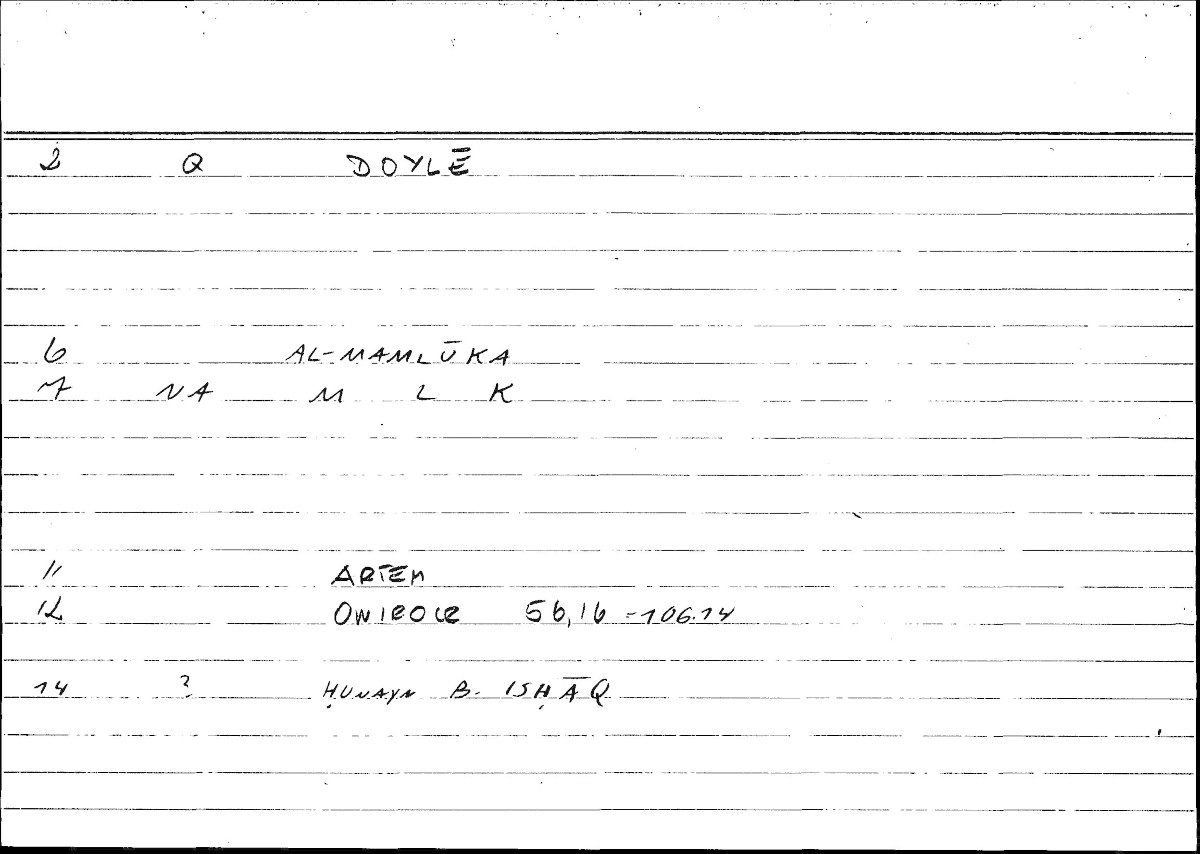 2 Q DOYLĒ
6 AL-MAMLŪKA
7 NA M L K
11 ARTEM
12 ONIROCR 56,16 = 106.14
14 ? ḤUNAYN B. ISḤĀQ